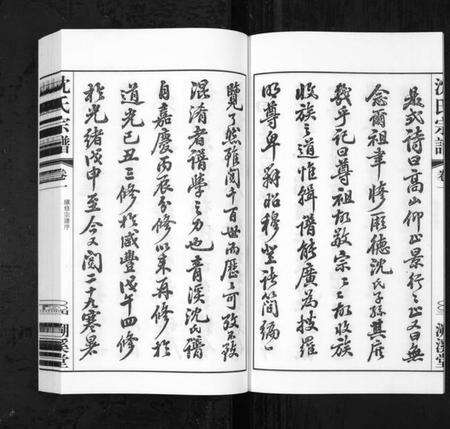 沈氏宗譜
卷一
是式詩曰高山仰止景行行止又曰無
念爾祖聿修厥德沈氏子孫其庶
幾乎記曰尊祖故敬宗敬宗故收族
收族之道惟緝譜能廣為搜羅
明尊卑辨昭穆登諸簡編一
覽了然雖閱千百世而歷歷可考不致
混淆者譜學之力也青溪沈氏譜
自嘉慶丙辰分修以來再修於
道光己丑三修於咸豐戊午四修
於光緒戊申至今又閱二十九寒暑
沈氏宗譜
卷一
續修宗譜序